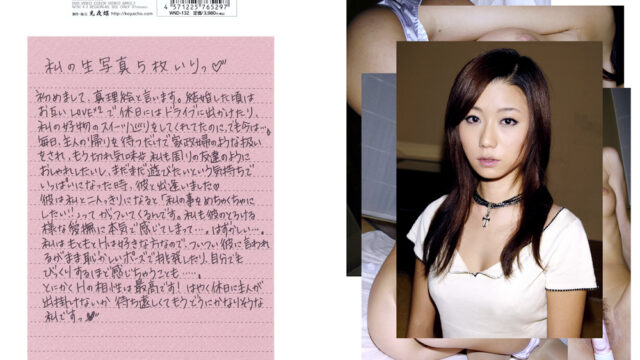 DVD VIDEO
発売・販売 光夜蝶 http://koyacho.com
4 571225 765297
WND-132 定価/3,980円(税込)
私の生写真5枚いりっ♡
初めまして、真理絵と言います。結婚した頃は
お互いLOVE²で休日にはドライブに出かけたり、
私の好物のスイーツ巡りをしてくれてたのに、でも今は…。
毎日、主人の帰りを待つだけで家政婦のような扱い
をされ、もう切れ気味。私も周りの友達のように
おしゃれしたいし、まだまだ遊びたいという気持ちで
いっぱいになった時、彼と出逢いました♡
彼は私と二人っきりになると「私の事をめちゃくちゃに
したい!」って がっついてくるんです。私も彼のとろける
様な愛撫に本気で感じてしまって…。はずかしい…。
私はもともとHは好きな方なので、ついつい彼に言われ
るがまま恥かしいポーズで挑発したり、自分でも
びっくりするほど感じちゃうことも……。
とにかくHの相性は最高です!はやく休日に主人が
出掛けないか 待ち遠しくてもうどうにかなりそうな
私ですっ♡